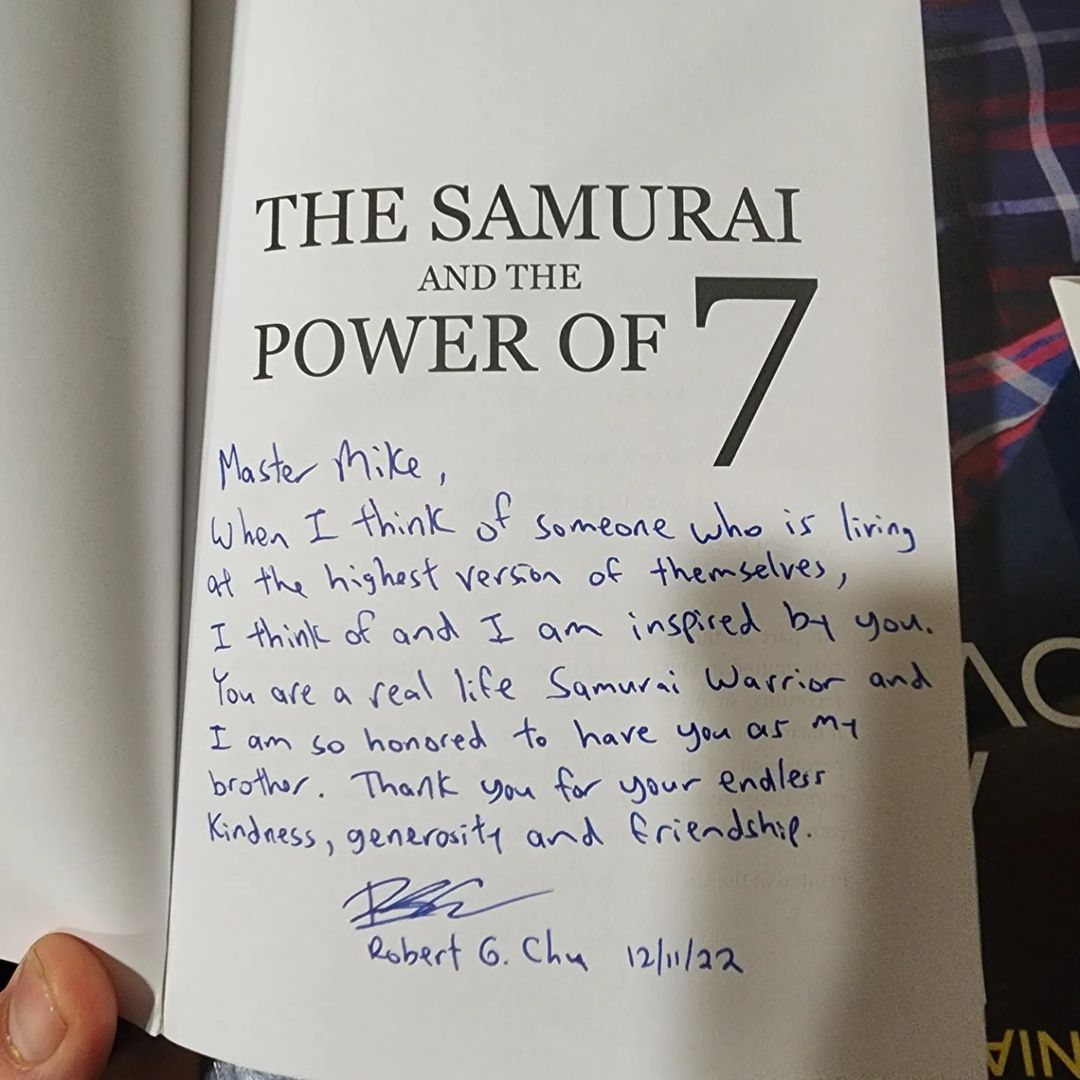 THE SAMURAI
AND THE
POWER OF 7
Master Mike,
When I think of someone who is living
at the highest version of themselves,
I think of and I am inspired by you.
You are a real life Samurai Warrior and
I am so honored to have you as my
brother. Thank you for your endless
Kindness, generosity and friendship.
Robert G. Chu 12/11/22